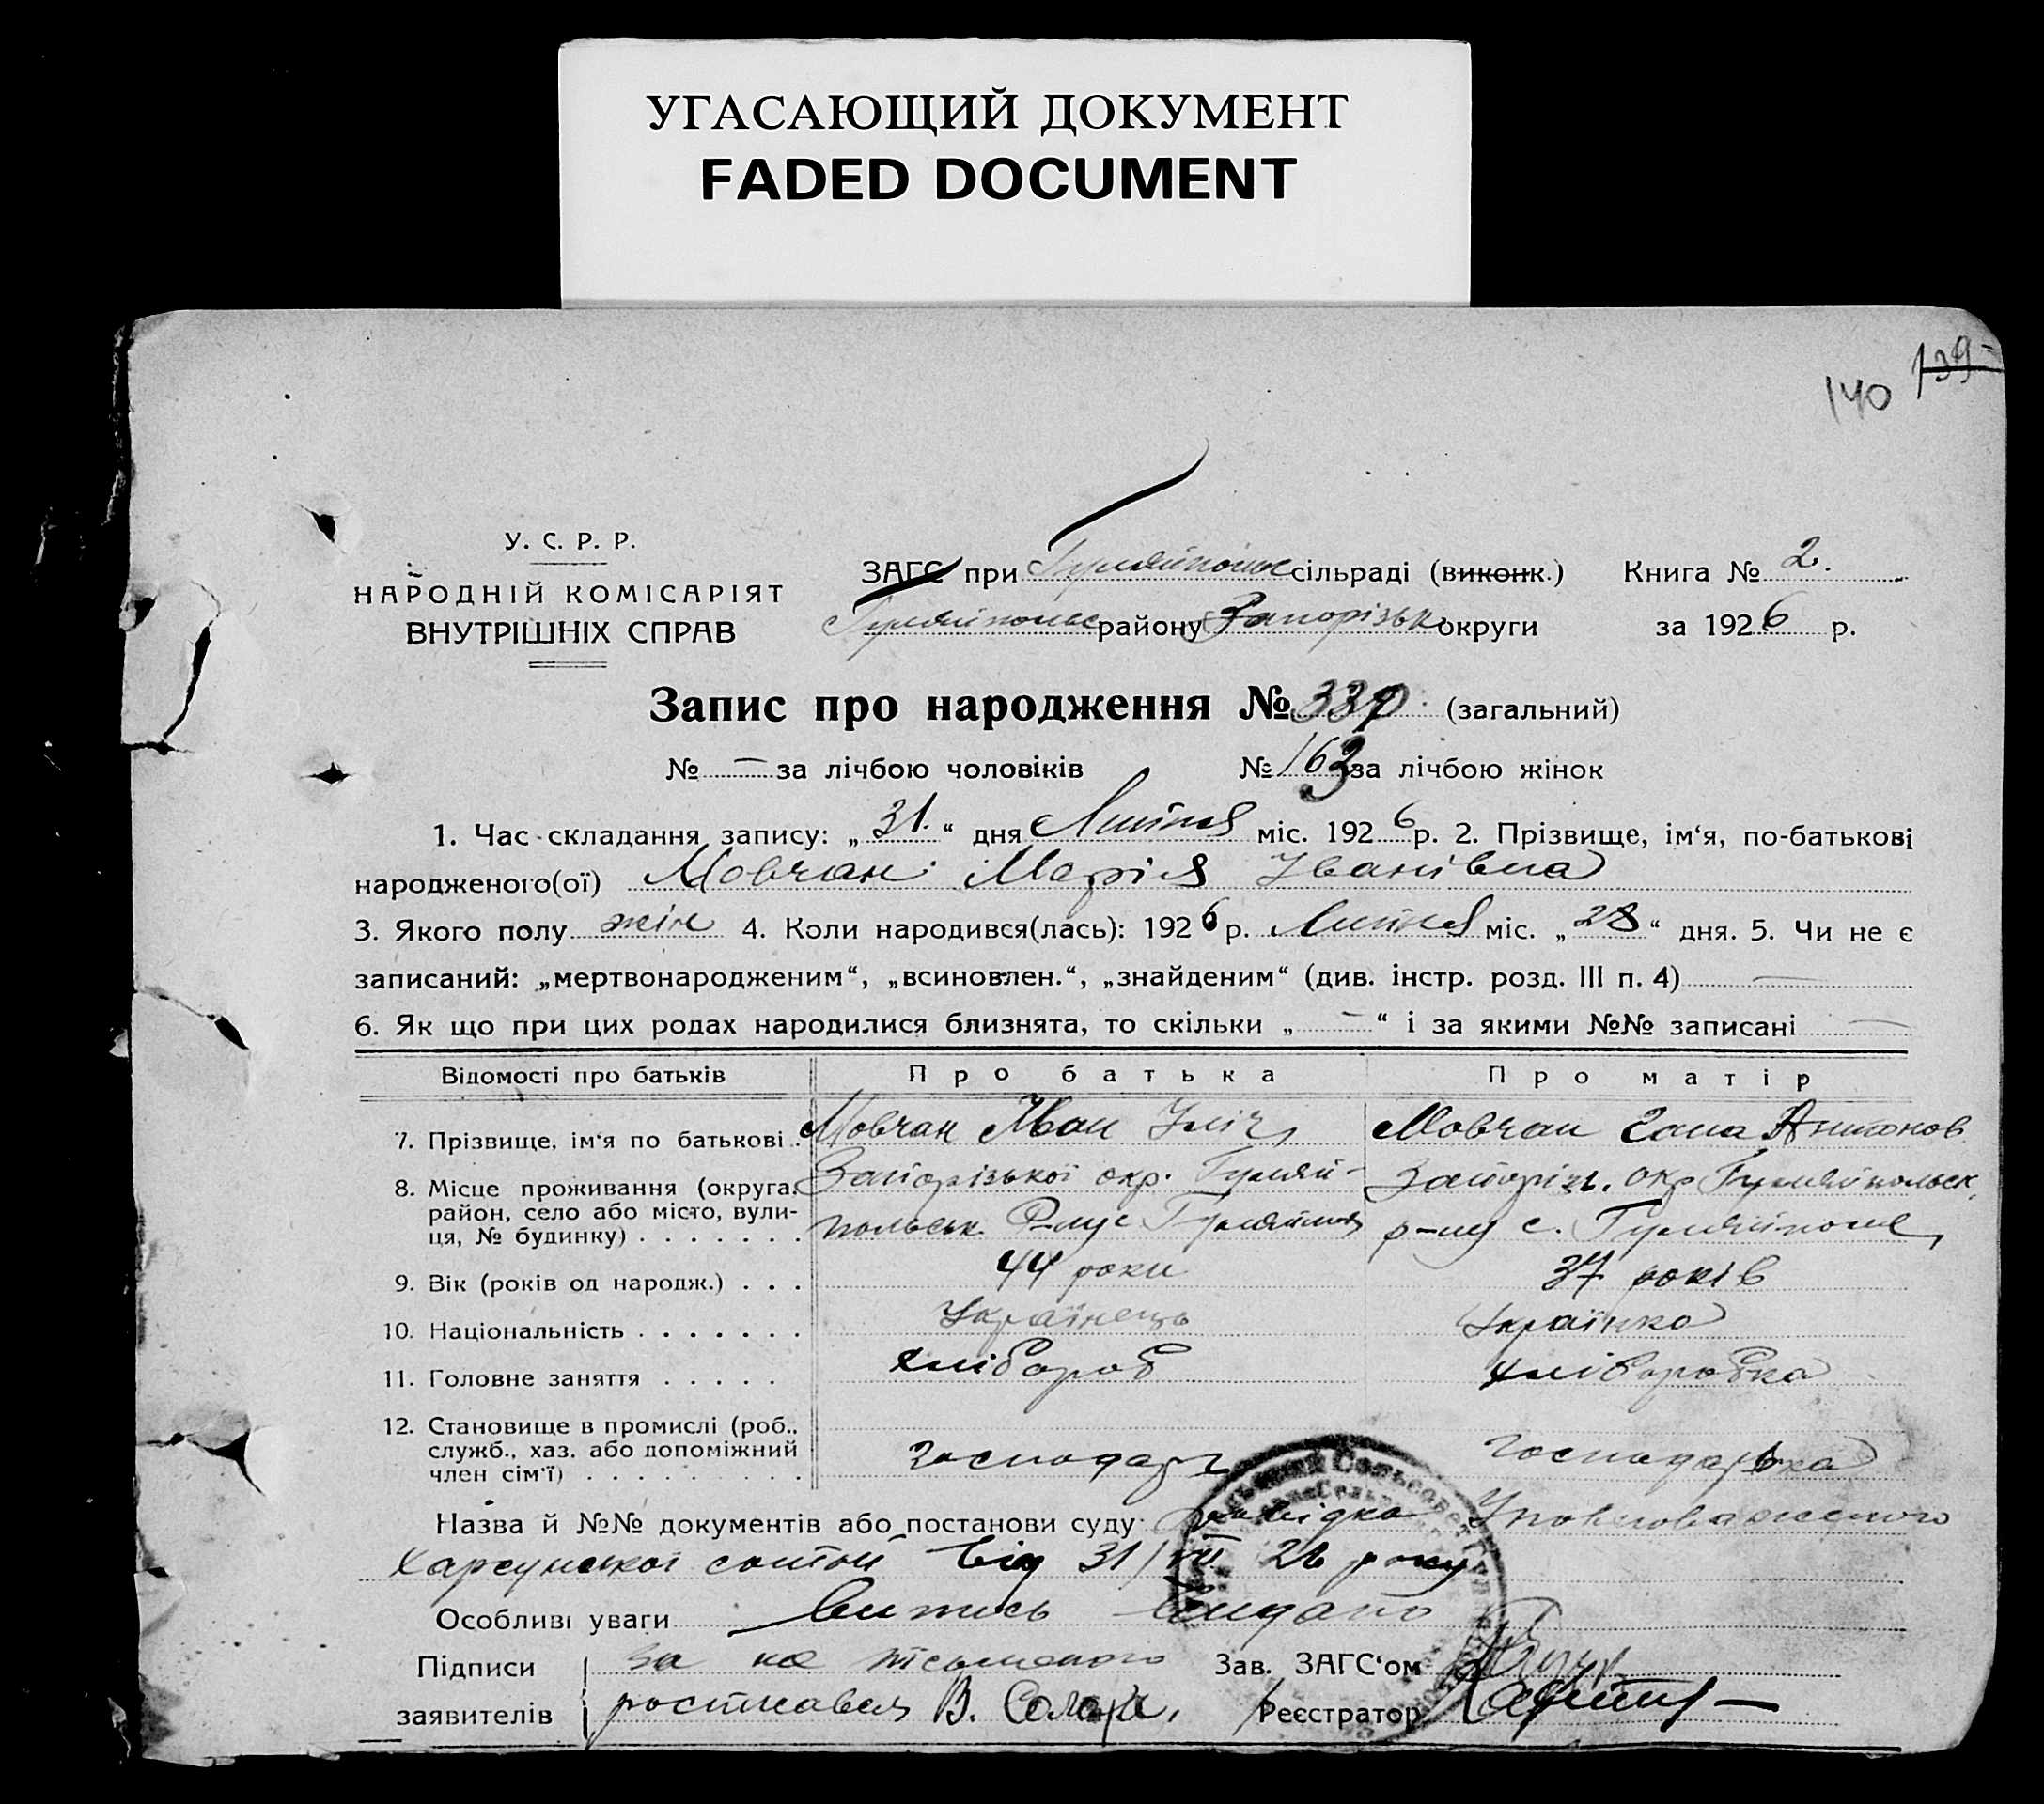 УГАСАЮЩИЙ ДОКУМЕНТ
FADED DOCUMENT
139
140
У. С. Р. Р.
НАРОДНІЙ КОМІСАРІЯТ
ВНУТРІШНІХ СПРАВ
ЗАГС при Гуляйпольс сільраді (виконк.) Книга № 2.
Гуляйпольс району Запорізьк округи за 1926 р.
Запис про народження № 339 (загальний)
№ — за лічбою чоловіків № 163 за лічбою жінок
1. Час складання запису: „31.“ дня Липня міс. 1926 р. 2. Прізвище, ім‘я, по-батькові
народженого(ої) Мовчан Марія Іванівна
3. Якого полу жін 4. Коли народився(лась): 1926 р. Липня міс. „28“ дня. 5. Чи не є
записаний: „мертвонародженим“, „всиновлен.“, „знайденим“ (див. інстр. розд. III п. 4) —
6. Як що при цих родах народилися близнята, то скільки „—“ і за якими №№ записані —
Відомості про батьків Про батька Про матір
7. Прізвище, ім‘я по батькові . Мовчан Іван Ілліч Мовчан Гана Антонов
8. Місце проживання (округа, Запорізької окр. Гуляй- Запоріз. окр Гуляйпольск,
район, село або місто, вули- польськ. Р-ну с Гуляйполя р-ну с. Гуляйполя
ця, № будинку) . . . . . . .
9. Вік (років од народж.) . . . 44 роки 37 років
10. Національність . . . . . . . Українець Українка
11. Головне заняття . . . . . хлібороб хліборобка
12. Становище в промислі (роб.,
служб., хаз. або допоміжний господарь господарька
член сім‘ї) . . . . . . . . .
Назва й №№ документів або постанови суду: Довідка Уповноваженого
Херсунської сотні від 31/VII 26 року
Особливі уваги Випись видано
Підписи за не письменого Зав. ЗАГС‘ом
заявителів росписався В. Реєстратор